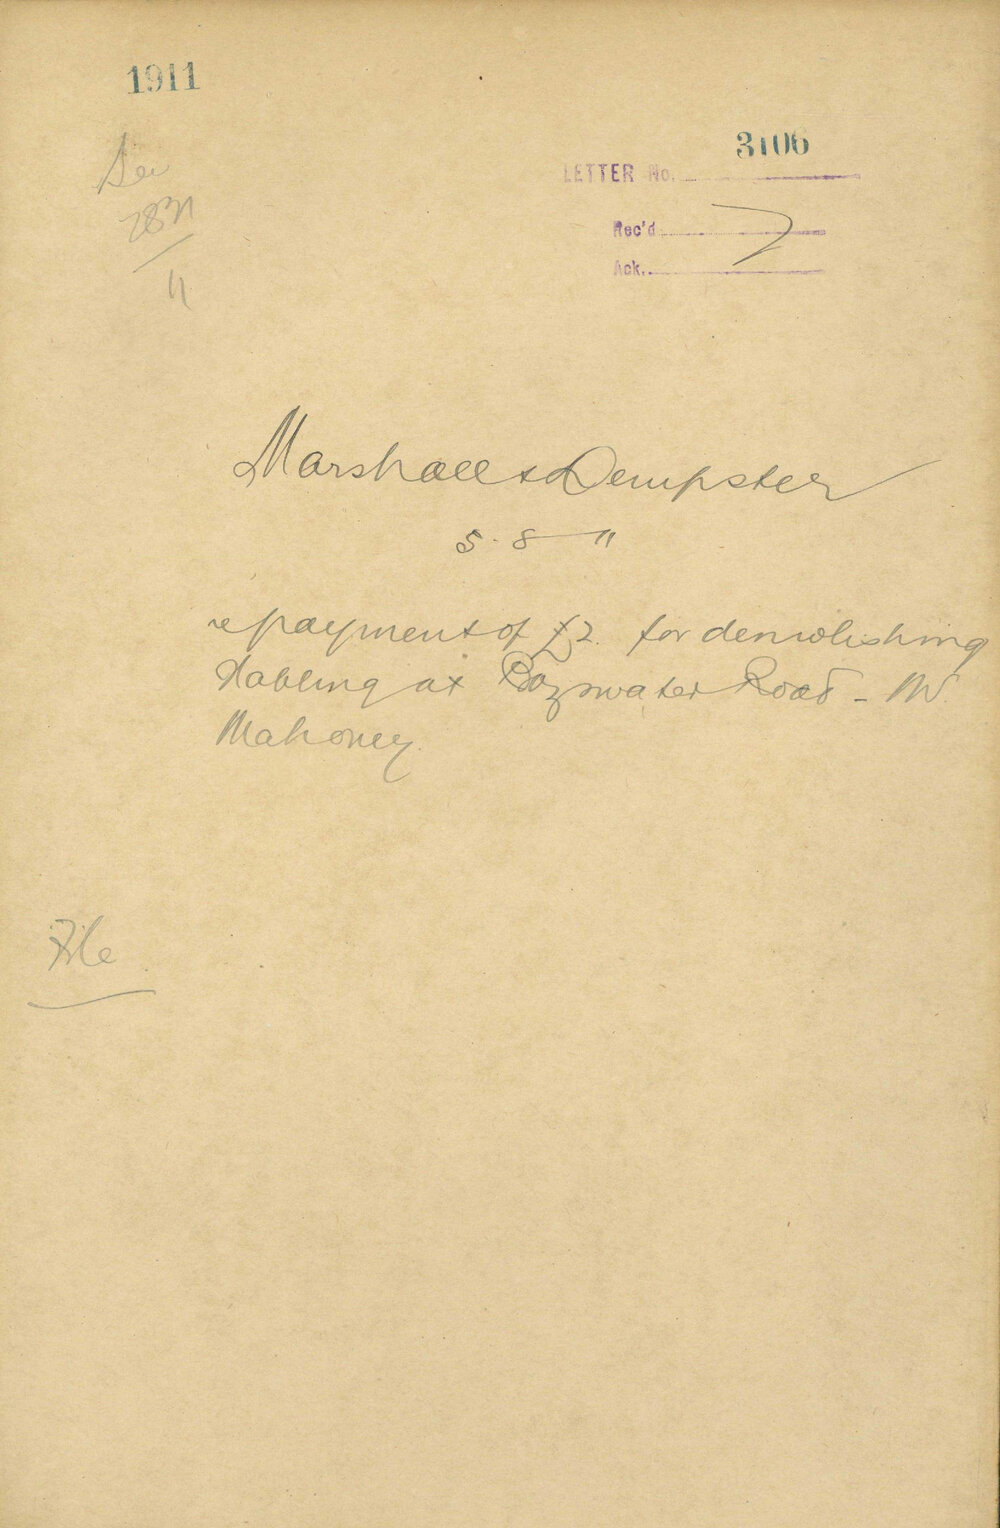 1911
3106
LETTER No.
Rec'd
Ack.
See
2831
11
Marshall & Dempster
5-8-11
repayment of £2. for demolishing
stabling at Bayswater Road - W
Mahoney.
File